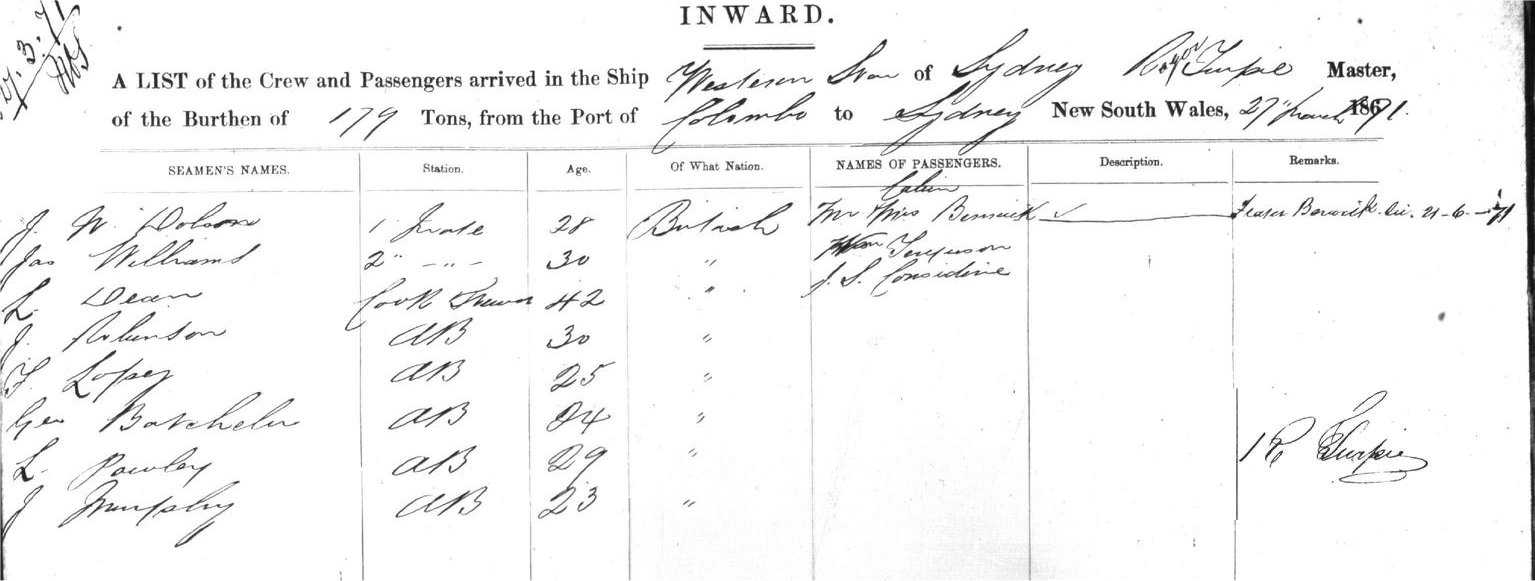 27.3.71
INWARD.
A LIST of the Crew and Passengers arrived in the Ship Western Star of Sydney Turpie Master,
of the Burthen of 179 Tons, from the Port of Colombo to Sydney New South Wales, 27" March 1871.
SEAMEN'S NAMES. Station. Age. Of What Nation. NAMES OF PASSENGERS. Description. Remarks.
Cabin
J. W. Dobson 1 Mate 28 British Mr Mrs Berwick ✓ Fraser Berwick 21-6-71
Jas Williams 2" -"- 30 " Ferguson
L. Dean Cook 42 " J. S. Considine
J. Robinson AB 30 "
F. Lopez AB 25 "
Geo Batchelor AB 24 "
L. Pawley AB 29 " R Turpie
J AB 23 "